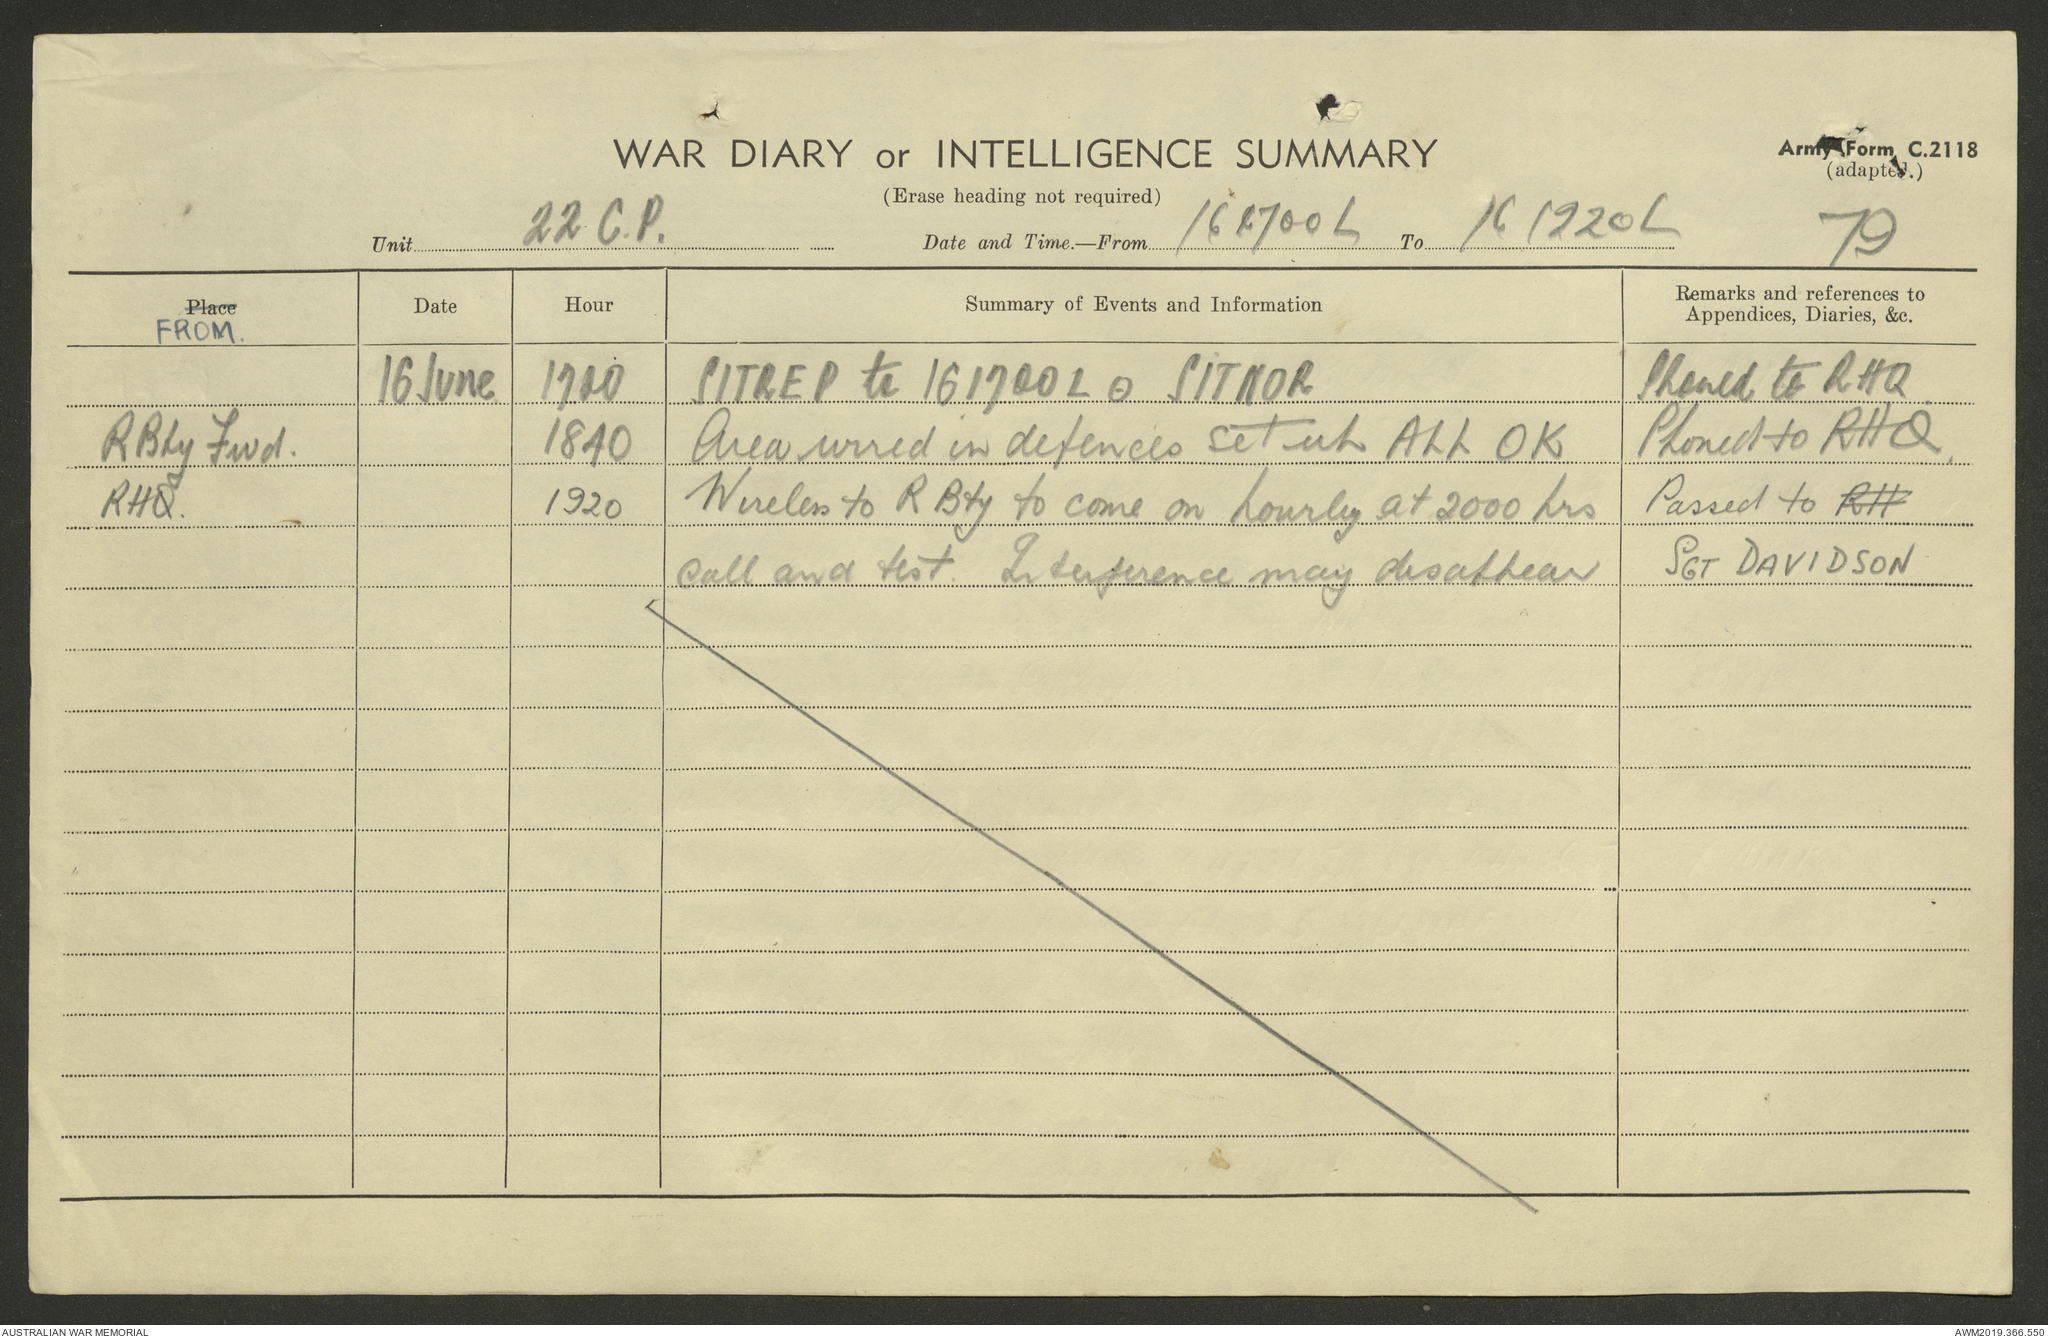 WAR DIARY or INTELLIGENCE SUMMARY
Army Form C.2118
(Erase heading not required)
(adapted.)
Unit 22 C.P. Date and Time.—From 161700L To 161920L
79
Place Date Hour Summary of Events and Information Remarks and references to
FROM. Appendices, Diaries, &c.
16 June 1700 SITREP to 161700L o SITNOR Phoned to RHQ
R Bty Fwd. 1840 Area wired in defences set up ALL OK Phoned to RHQ.
RHQ. 1920 Wireless to R Bty to come on hourly at 2000 hrs Passed to RH
call and test. Interference may disappear SGT DAVIDSON
AUSTRALIAN WAR MEMORIAL
AWM2019.366.550